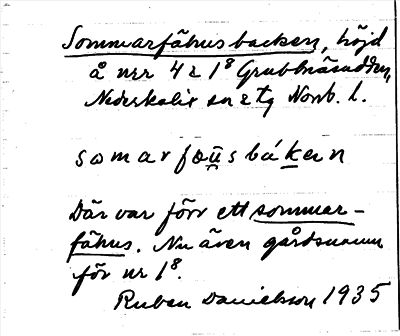 Sommarfähusbacken, höjd
å nrr 4 & 1⁸ Grubbnäsudden,
Nederkalix sn & tg Norrb. l.
somarfäüsbáken
Där var förr ett sommar-
fähus. Nu även gårdsnamn
för nr 1⁸.
Ruben Danielsson 1935